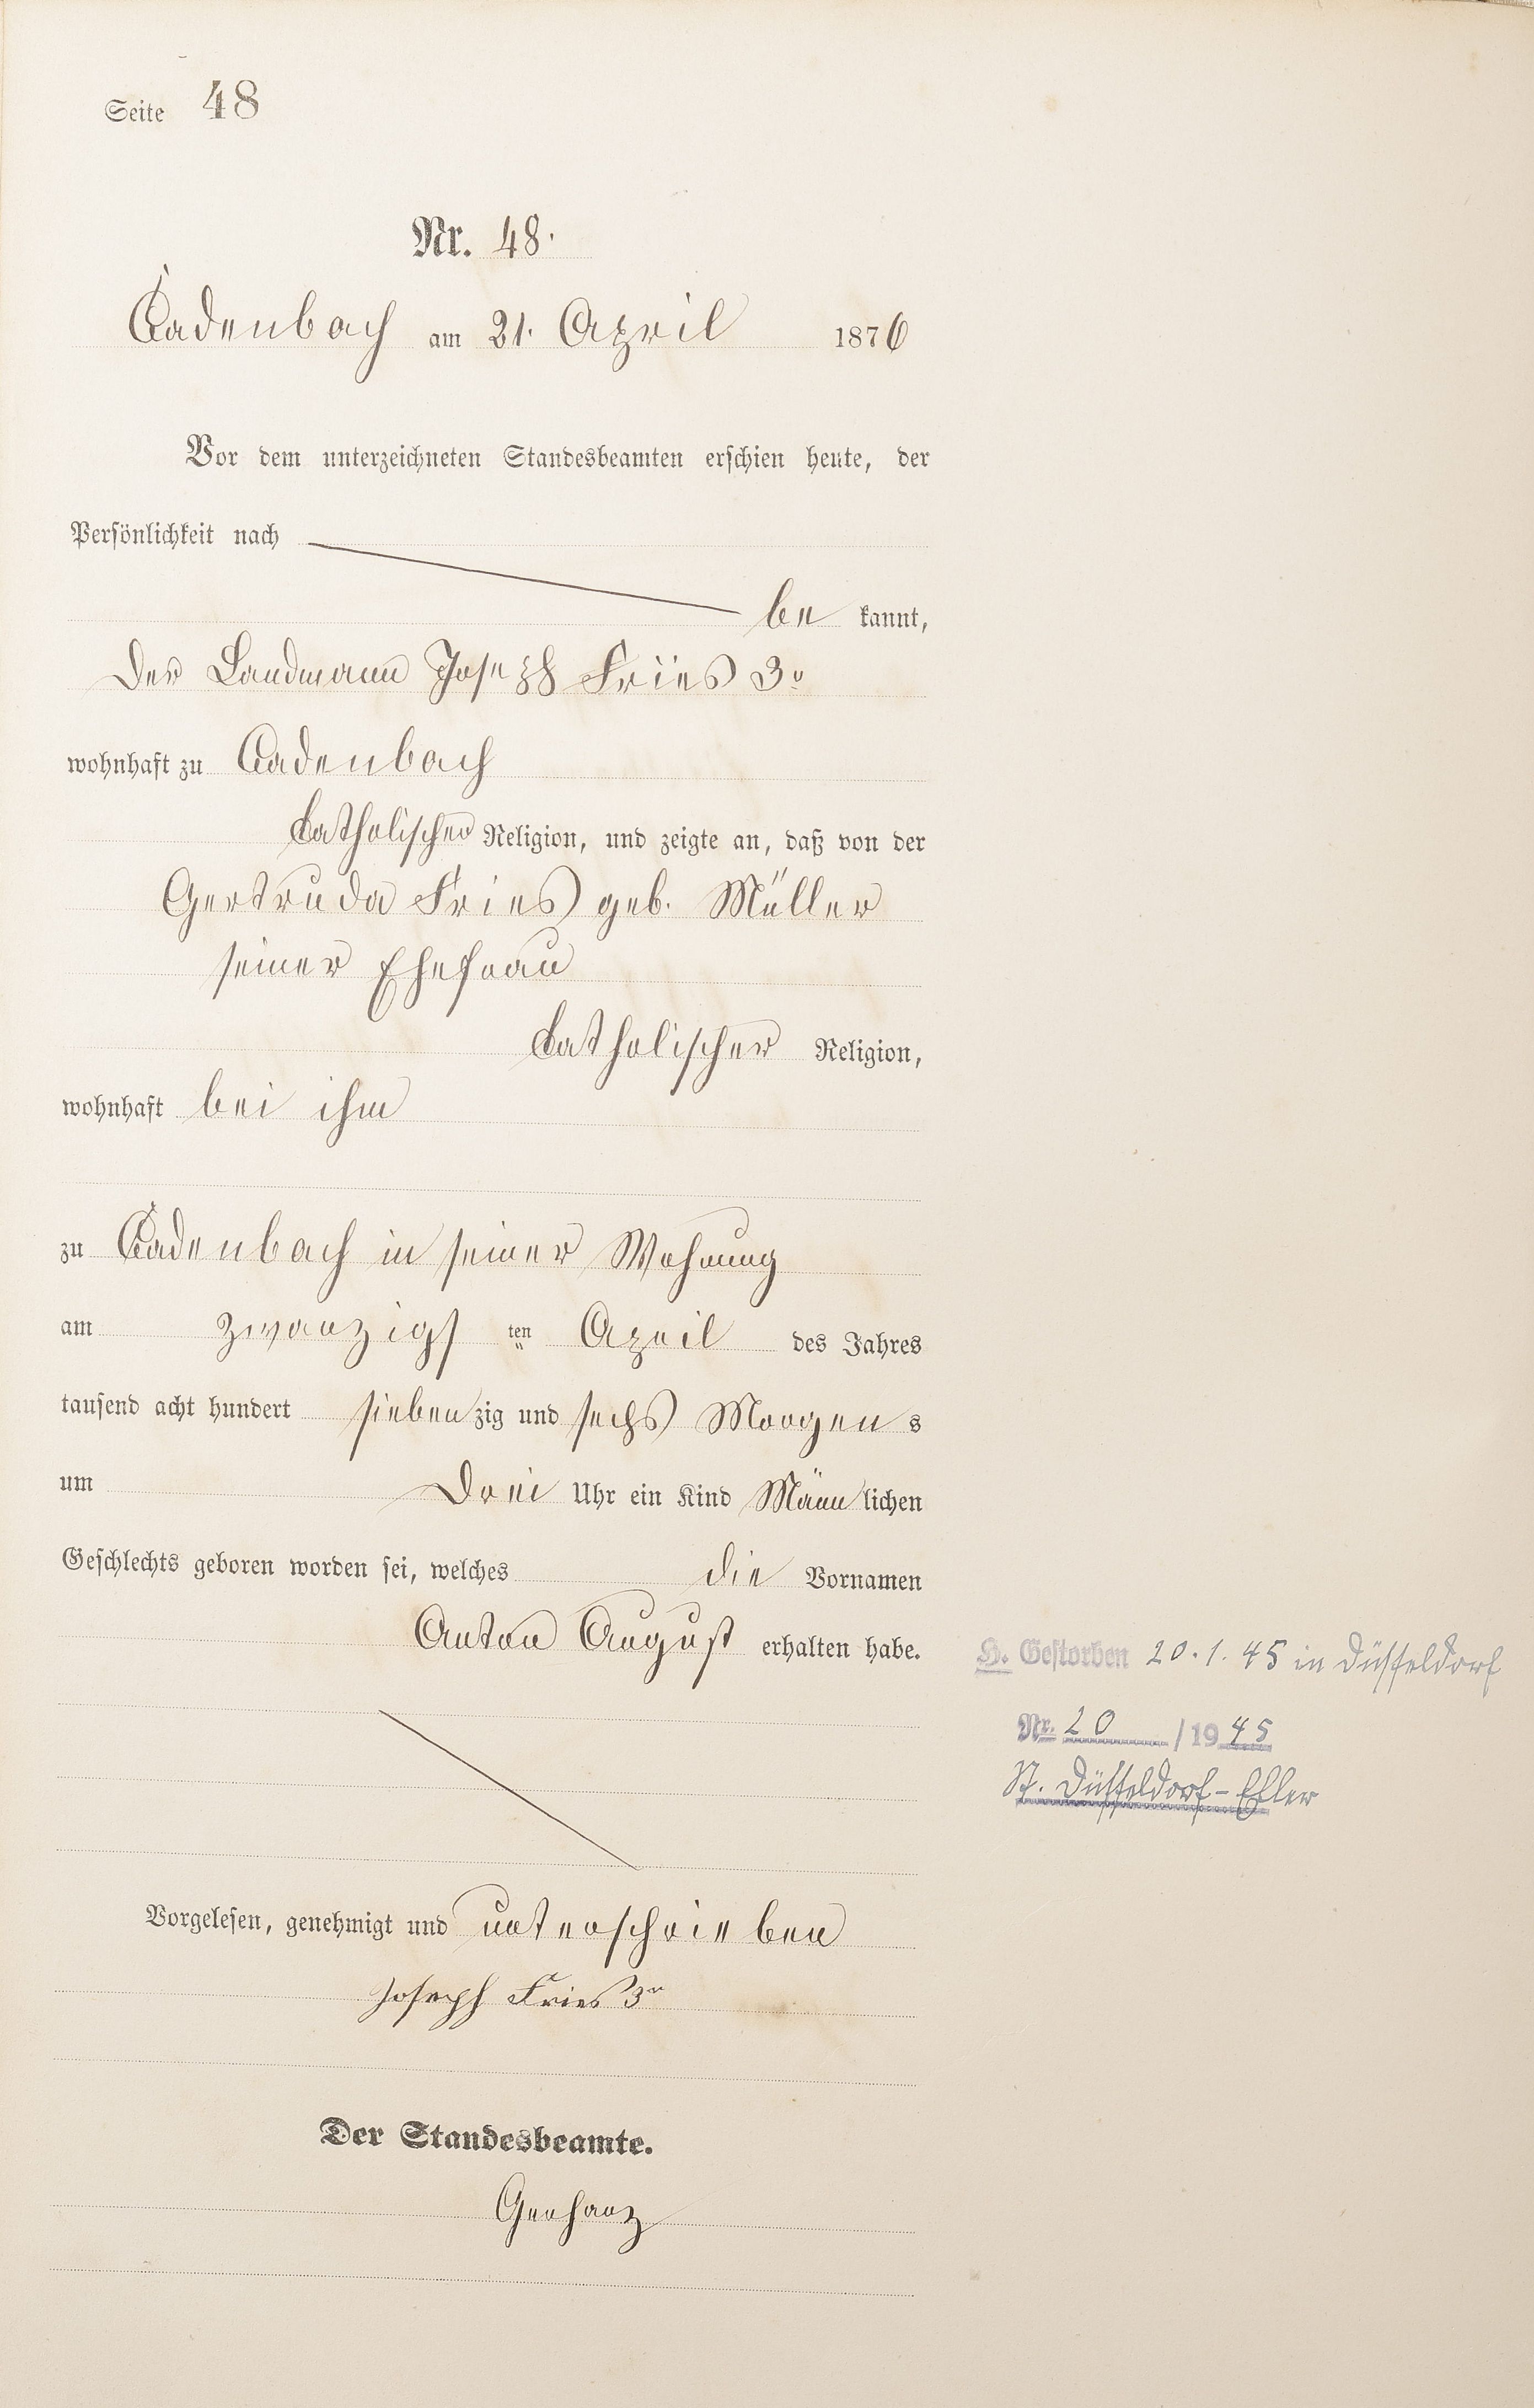 Seite 48
Nr. 48.
Cadenbach am 21. April 1876
Vor dem unterzeichneten Standesbeamten erschien heute, der
Persönlichkeit nach
be kannt,
Der Landmann Joseph Fries 3r
wohnhaft zu Cadenbach
katholischer Religion, und zeigte an, daß von der
Gertruda Fries geb. Müller
seiner Ehefrau
katholischer Religion,
wohnhaft bei ihm
zu Cadenbach in seiner Wohnung
am zwanzigs ten April des Jahres
tausend acht hundert sieben zig und sechs Morgens
um Drei Uhr ein Kind Männ lichen
Geschlechts geboren worden sei, welches die Vornamen
Anton August erhalten habe.
H. Gestorben 20.1.45 in Düsseldorf
Nr. 20 /1945
St. Düsseldorf-Eller
Vorgelesen, genehmigt und unterschrieben
Joseph Fries 3r
Der Standesbeamte.
Gerharz